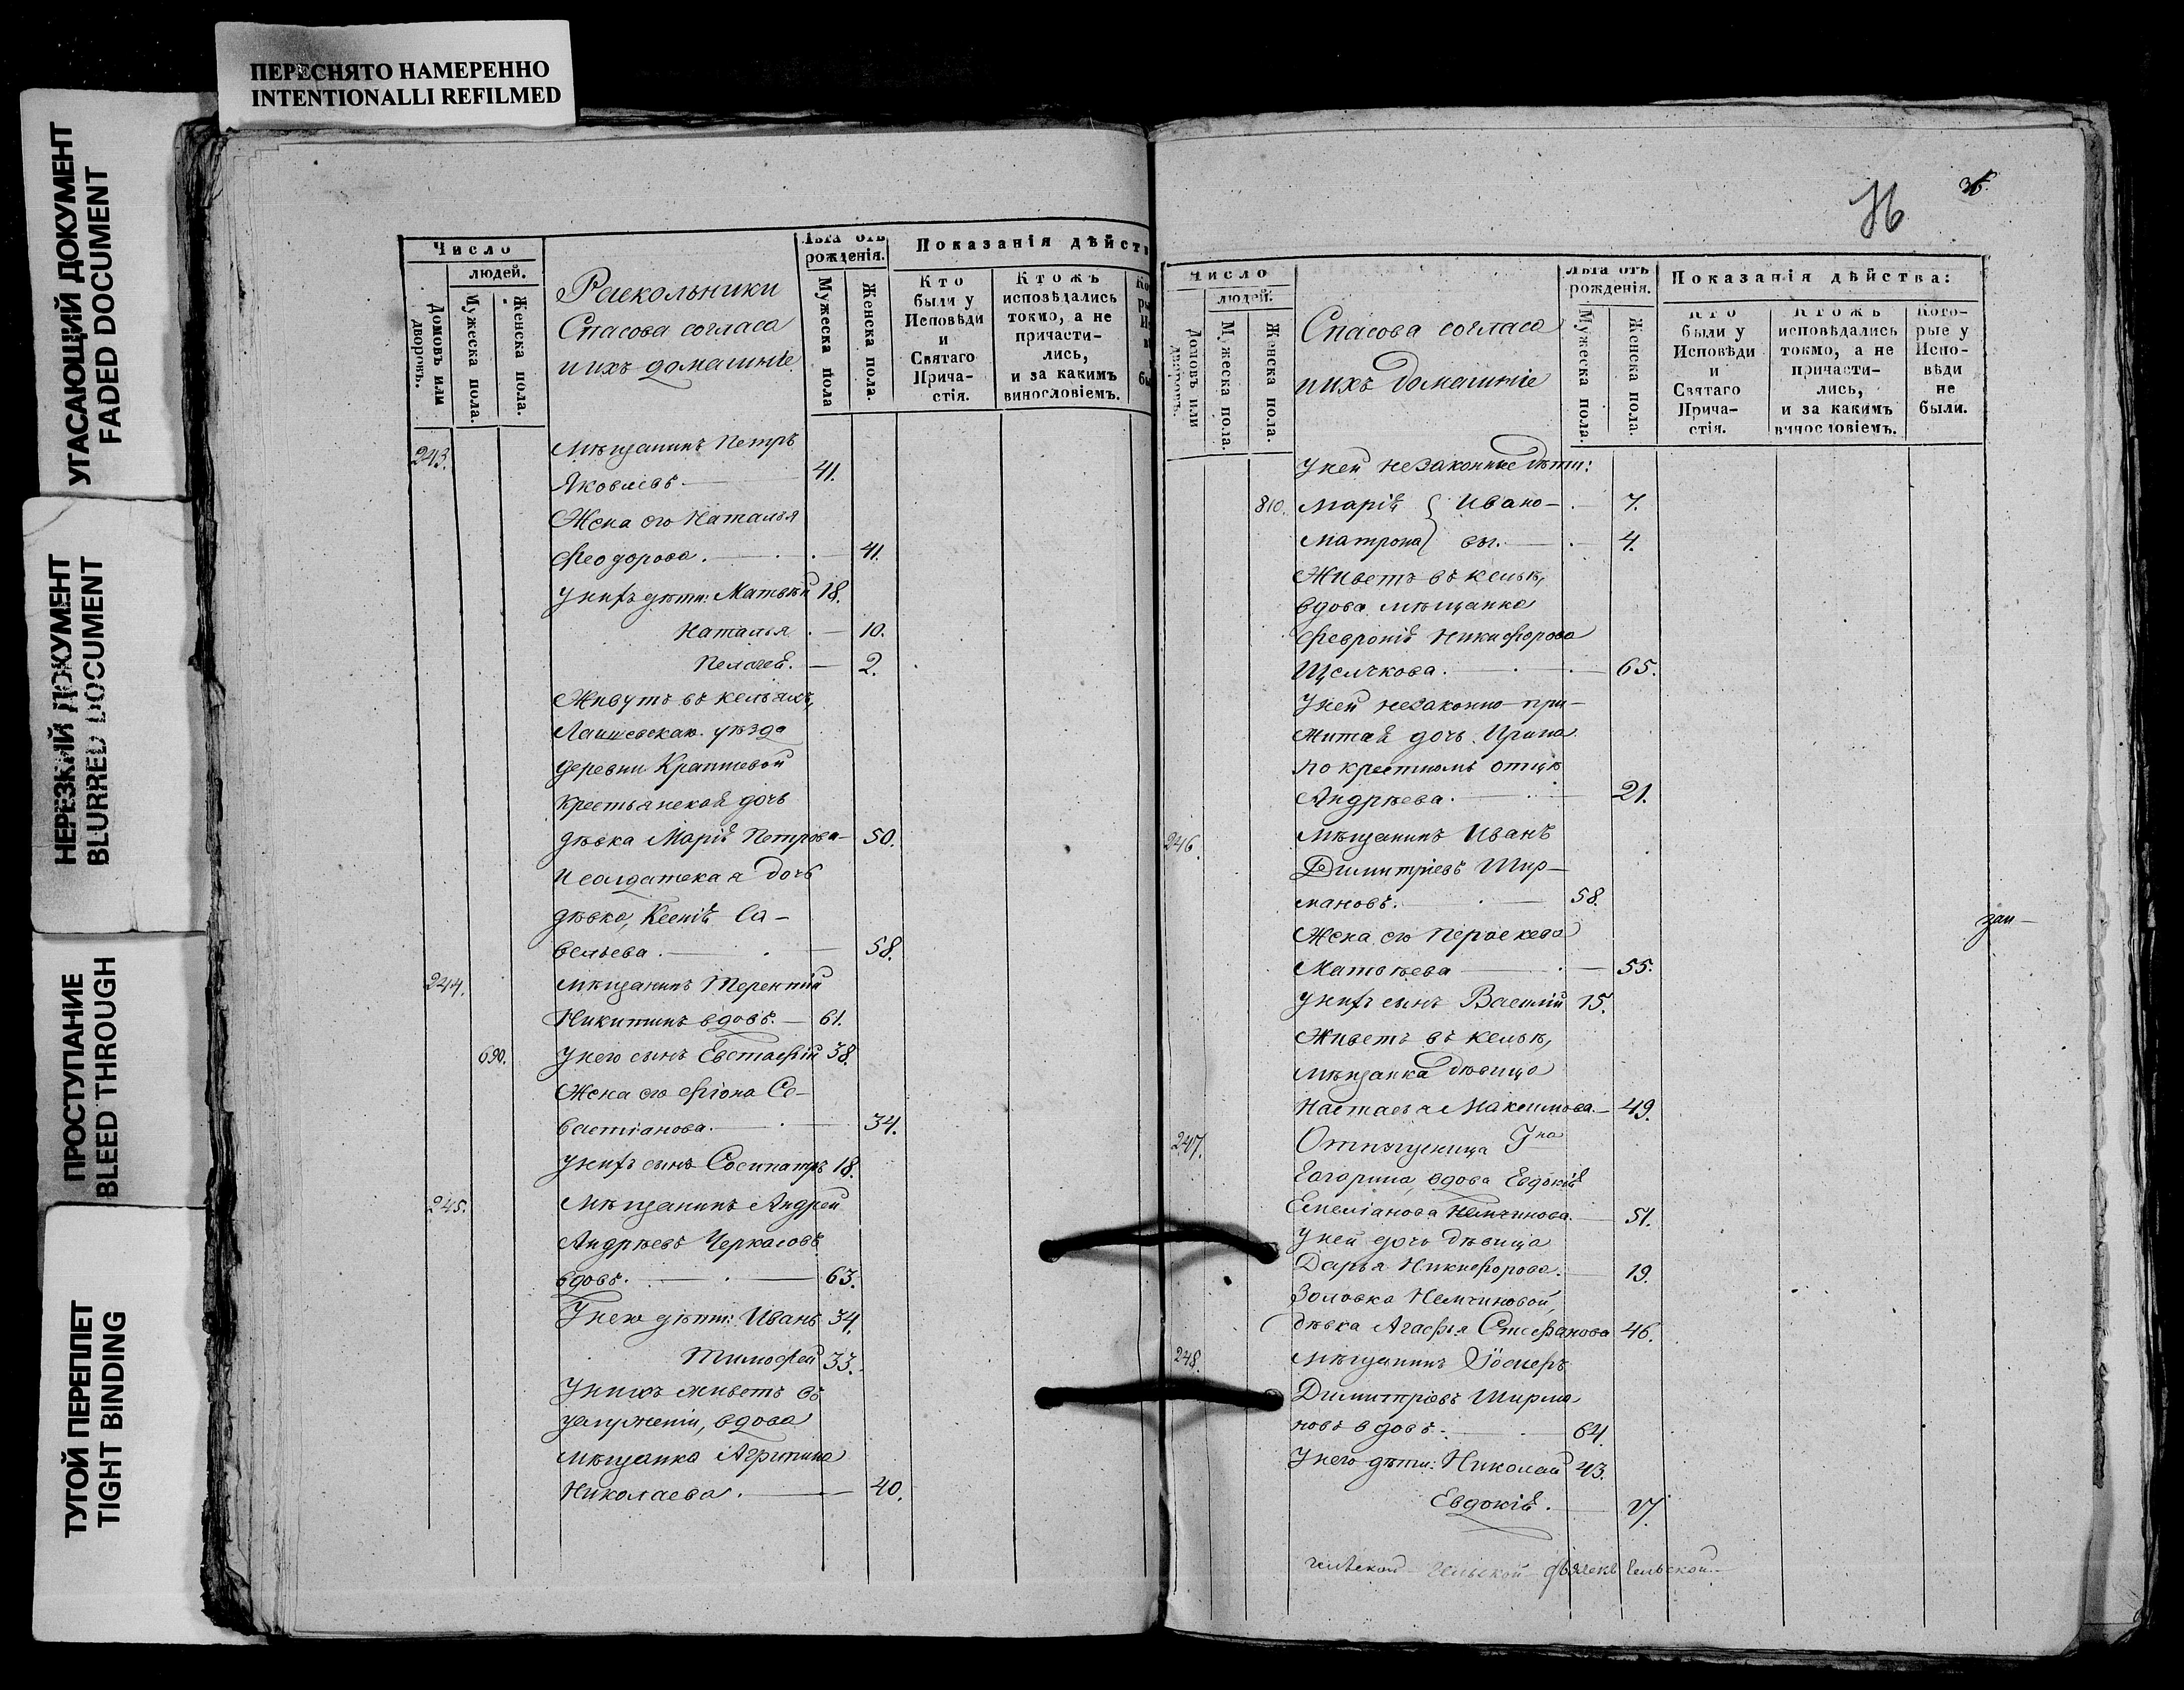 ПЕРЕСНЯТО НАМЕРЕННО
INTENTIONALLI REFILMED
УГАСАЮЩИЙ ДОКУМЕНТ
FADED DOCUMENT
НЕРЕЗКИЙ ДОКУМЕНТ
BLURRED DOCUMENT
ПРОСТУПАНИЕ
BLEED THROUGH
ТУГОЙ ПЕРЕПЛЕТ
TIGHT BINDING
Число
людей.
Домовъ или дворовъ.
Мужеска пола.
Женска пола.
Раскольники
Спасова согласа
и ихъ домашніе
Лѣта отъ рожденія.
Мужеска пола
Женска пола.
Показанія дѣйст
Кто были у Исповѣди и Святаго Прича-стія.
Ктожъ исповѣдались токмо, а не причасти-лись, и за какимъ винословіемъ.
243. Мѣщанинъ Петръ
Яковлевъ 41.
Жена его Наталья
Феодорова. 41.
У нихъ дѣти: Матвѣй 18.
Наталья 10.
Пелагея. 2.
Живутъ въ кельяхъ,
Лаишевскаго уѣзда
деревни
крестьянская дочь
дѣвка Марія Петрова 50.
и солдатская дочь
дѣвка, Ксенія Са-
вельева. 58.
244. Мѣщанинъ Терентій
Никитинъ вдовъ. 61.
690. У него сынъ Евстафій 38.
Жена его Фіона Се-
вастіанова. 34.
У нихъ сынъ Сосипатръ 18.
245. Мѣщанинъ Андрей
Андрѣевъ Черкасовъ
вдовъ. 63.
У него дѣти: Иванъ 34.
Тимофей 33.
У нихъ живетъ въ
услуженіи, вдова
мѣщанка Агрипина
Николаева. 40.
36
Число
людей.
Домовъ или дворовъ.
Мужеска пола.
Женска пола.
Спасова согласа
и ихъ домашніе
Лѣта отъ рожденія.
Мужеска пола.
Женска пола.
Показанія дѣйства:
Кто были у Исповѣди и Святаго Прича-стія.
Ктожъ исповѣдались токмо, а не причасти-лись, и за какимъ винословіемъ.
Кото-рые у Испо-вѣди не были.
У ней незаконные дѣти:
810. Марія } Ивано- 7.
Матрона } вы. 4.
Живетъ въ кельѣ,
вдова мѣщанка
Февронія Никифорова
Щелчкова. 65.
У ней незаконно при-
житая дочь Ирина
по крестномъ отцѣ
Андрѣева. 21.
246. Мѣщанинъ Иванъ
Димитріевъ Шир-
мановъ. 58.
Жена его Параскева
Матвѣева 55.
У нихъ сынъ Василій 15.
Живетъ въ кельѣ,
мѣщанка дѣвица
Настасья Максимова. 49.
247. Отпущеница Гна
Гагарина, вдова Евдокія
Емеліанова Немчинова. 51.
У ней дочь дѣвица
Дарья Никифорова. 19.
Золовка Немчиновой,
дѣвка Агафья Стефанова 46.
248. Мѣщанинъ
Димитріевъ Ширма
новъ вдовъ. 64.
У него дѣти: Николай 43.
Евдокія. 27.